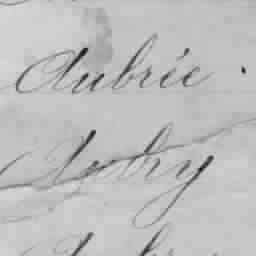 Aubrée.
Aubry